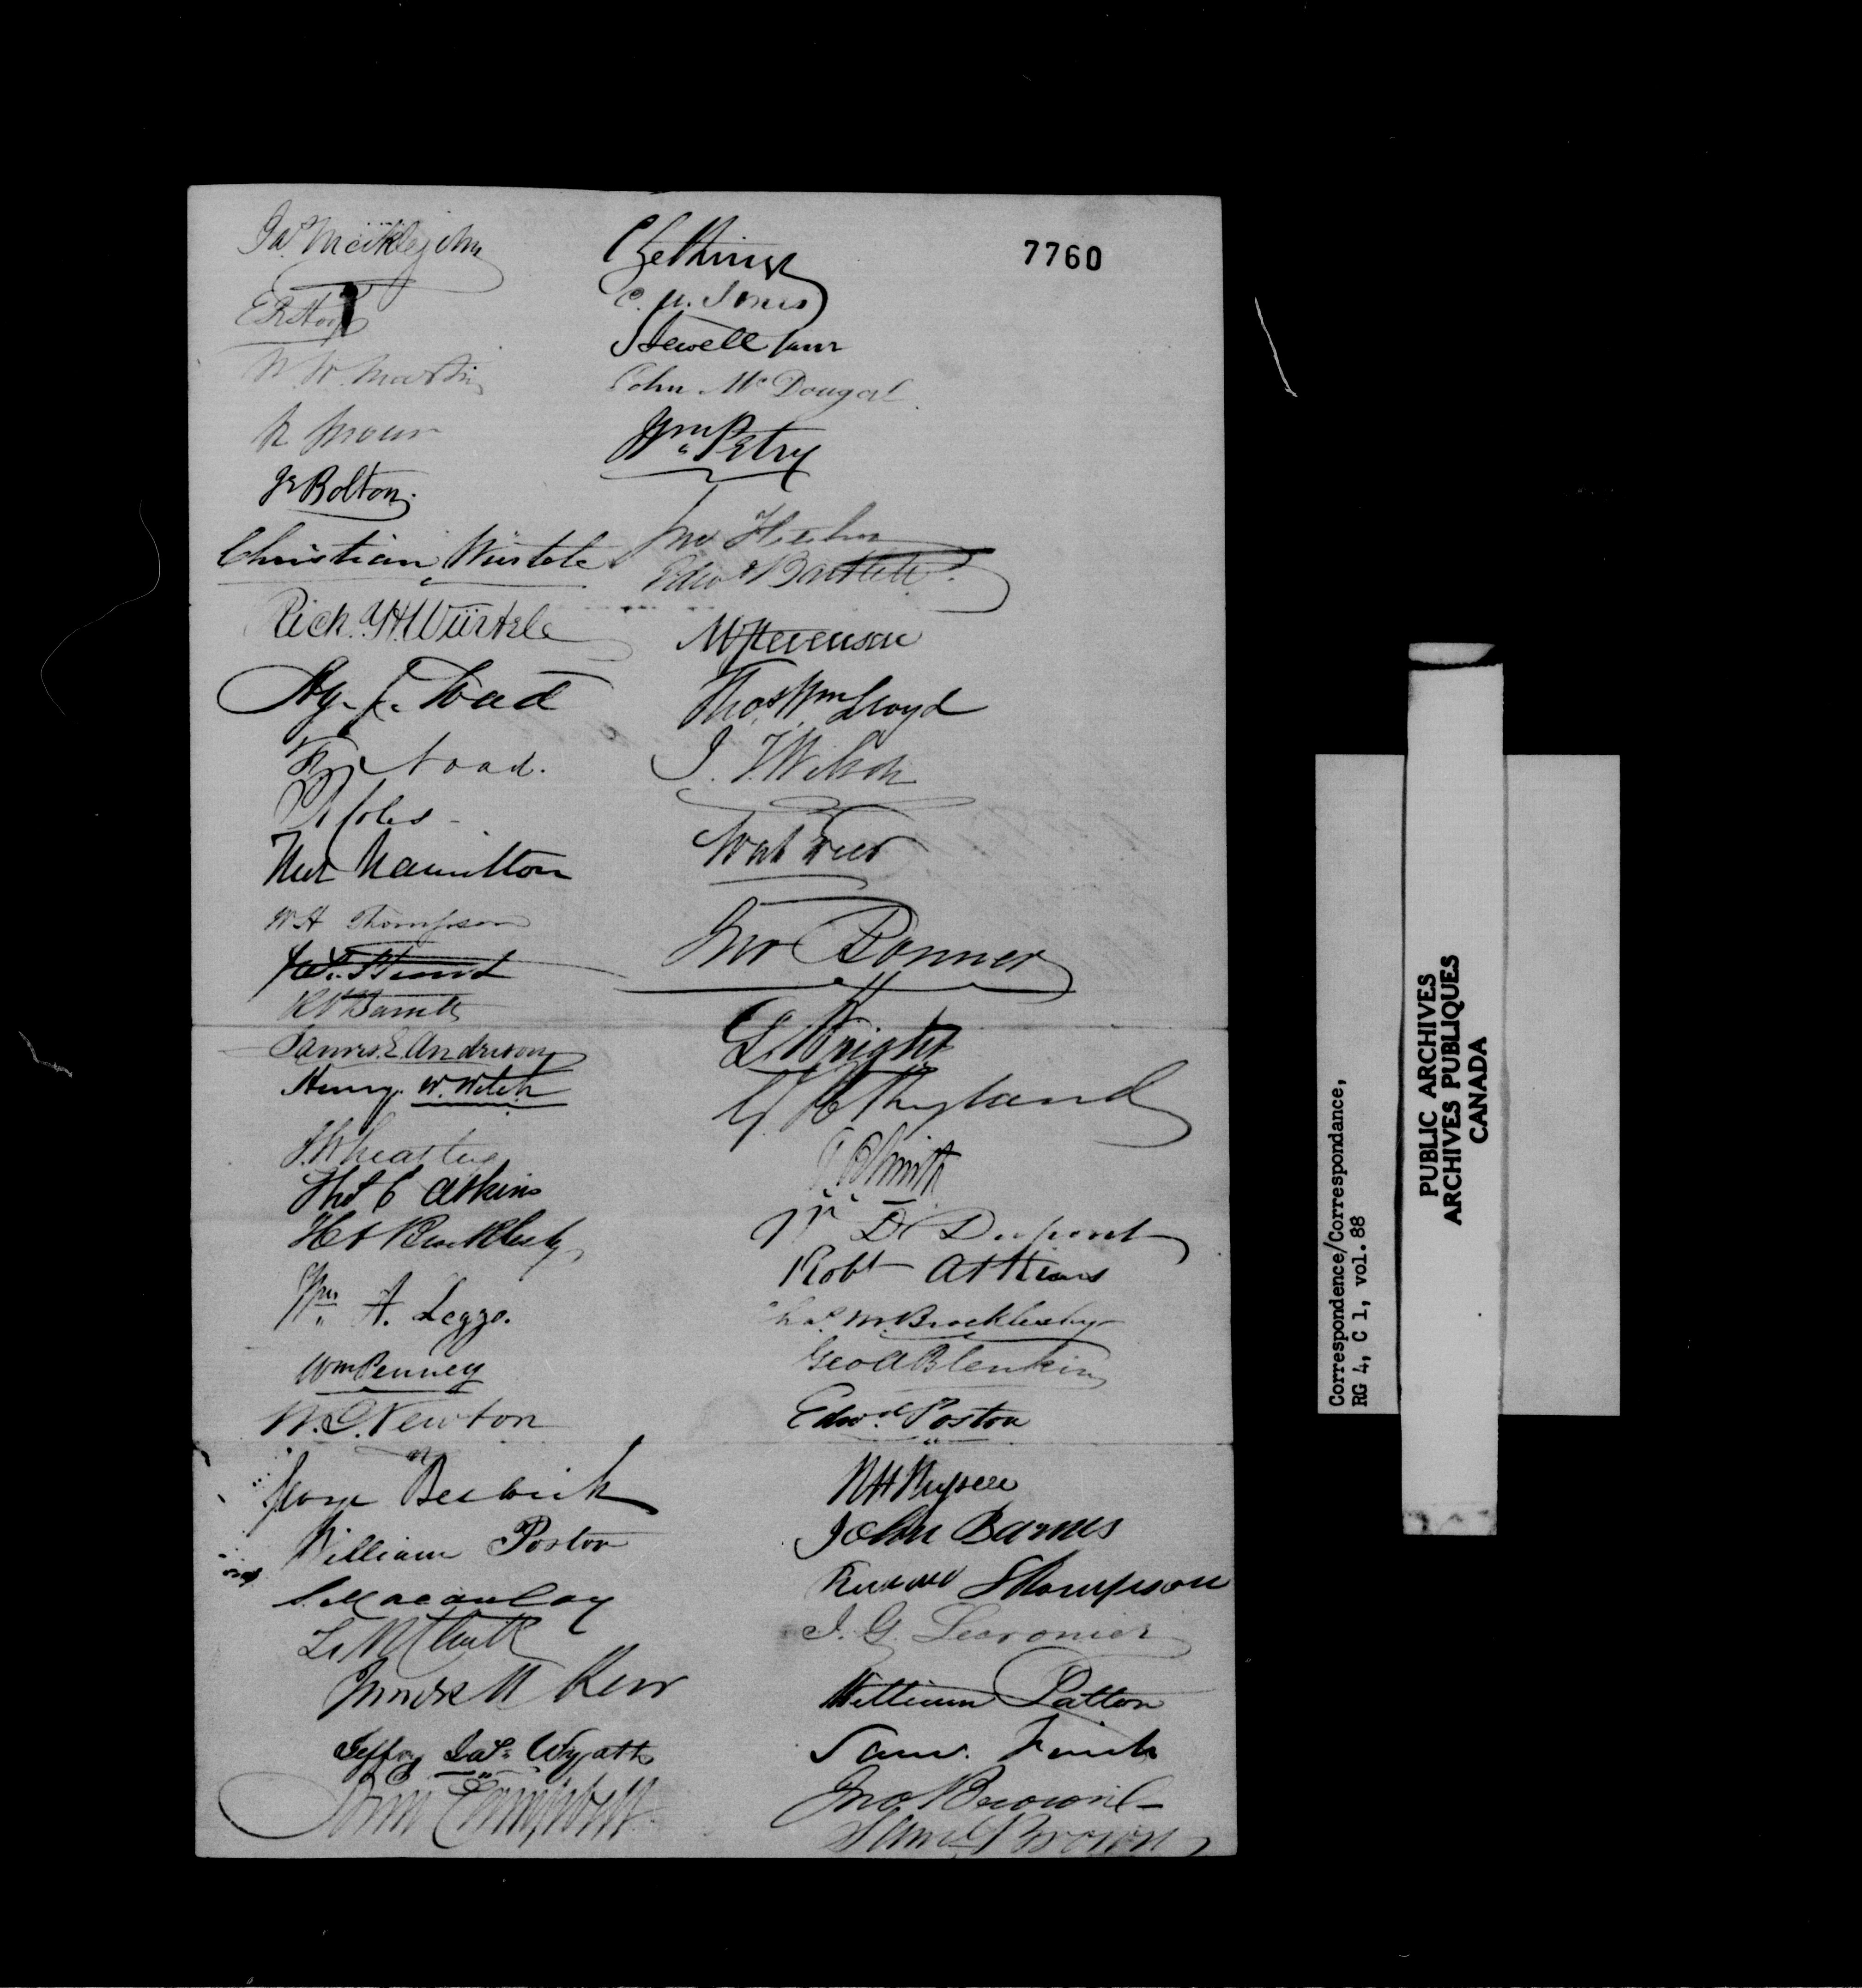 Jas. Meiklejohn
W. W. Martin
R
Js Bolton
Christian Wurtele
Rich. Y. H. Würtele
Hy. J. Noad
Noad.
Coles
Hamilton
W H Thompson
James E. Anderson
Henry W. Welch
J. Wheatley
Thos C Atkins
Brocklesby
Wm A. Legge.
Wm Penney
W. C. Newton
George Beswick
William Poston
Macaulay
James M Kerr
Jeffrey Jas. Wyatt
John Campbell
7760
C Gethings
C. M. Jones
Sewell Junr
John McDougal
Wm Petry
Jno
Edwd Bartlett
M Stevenson
Thos Wm Lloyd
J. T. Wilson
Jno Bonner
Wright
G. H. Ryland
Smith
Dupont
Robt Atkins
Chas. M. Brocklesby
Geo A Blenkin
Edwd Poston
W H Russell
John Barnes
Thompson
J. G. Learonier
William Patton
Jno Brown
Saml Brown
Correspondence/Correspondance,
RG 4, C 1, vol. 88
PUBLIC ARCHIVES
ARCHIVES PUBLIQUES
CANADA